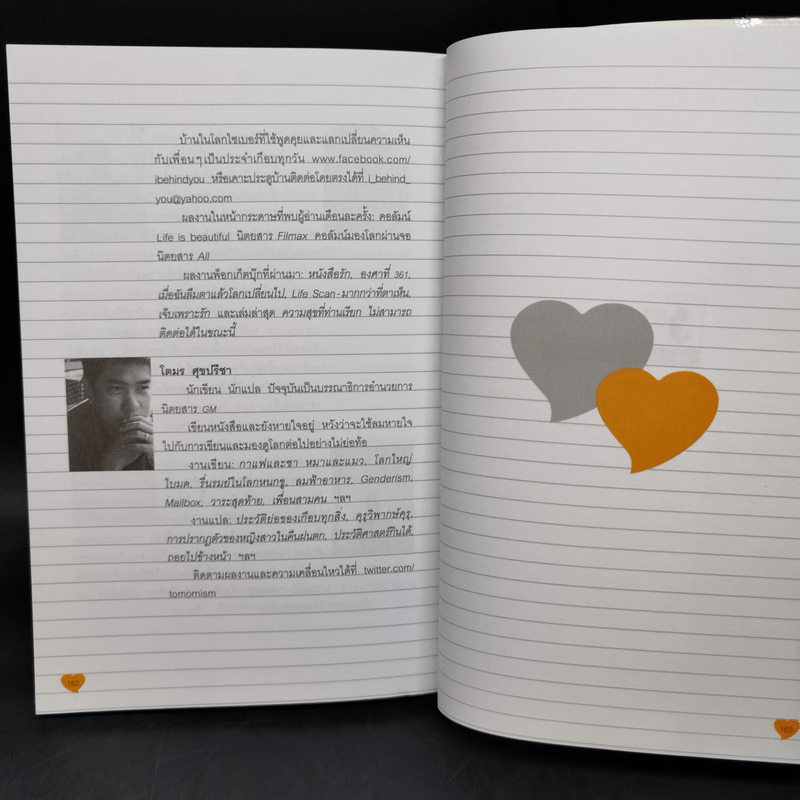 บ้านในโลกไซเบอร์ที่ใช้พูดคุยและแลกเปลี่ยนความเห็น
กับเพื่อนๆ เป็นประจำเกือบทุกวัน www.facebook.com/
ibehindyou หรือเคาะประตูบ้านติดต่อโดยตรงได้ที่ i_behind_
you@yahoo.com
ผลงานในหน้ากระดาษที่พบผู้อ่านเดือนละครั้ง: คอลัมน์
Life is beautiful นิตยสาร Filmax คอลัมน์มองโลกผ่านจอ
นิตยสาร All
ผลงานพ็อกเก็ตบุ๊กที่ผ่านมา: หนังสือรัก, องศาที่ 361,
เมื่อฉันลืมตาแล้วโลกเปลี่ยนไป, Life Scan-มากกว่าที่ตาเห็น,
เจ็บเพราะรัก และเล่มล่าสุด ความสุขที่ท่านเรียก ไม่สามารถ
ติดต่อได้ในขณะนี้
โตมร ศุขปรีชา
นักเขียน นักแปล ปัจจุบันเป็นบรรณาธิการอำนวยการ
นิตยสาร GM
เขียนหนังสือและยังหายใจอยู่ หวังว่าจะใช้ลมหายใจ
ไปกับการเขียนและมองดูโลกต่อไปอย่างไม่ย่อท้อ
งานเขียน: กาแฟและชา หมาและแมว, โลกใหญ่
ใบมด, รื่นรมย์ในโลกหนกขู, ลมฟ้าอาหาร, Genderism,
Mailbox, วาระสุดท้าย, เพื่อนสามคน ฯลฯ
งานแปล: ประวัติย่อของเกือบทุกสิ่ง, คุรุวิพากษ์คุรุ,
การปรากฏตัวของหญิงสาวในคืนฝนตก, ประวัติศาสตร์กินได้,
ถอยไปข้างหน้า ฯลฯ
ติดตามผลงานและความเคลื่อนไหวได้ที่ twitter.com/
tomornism
162
163